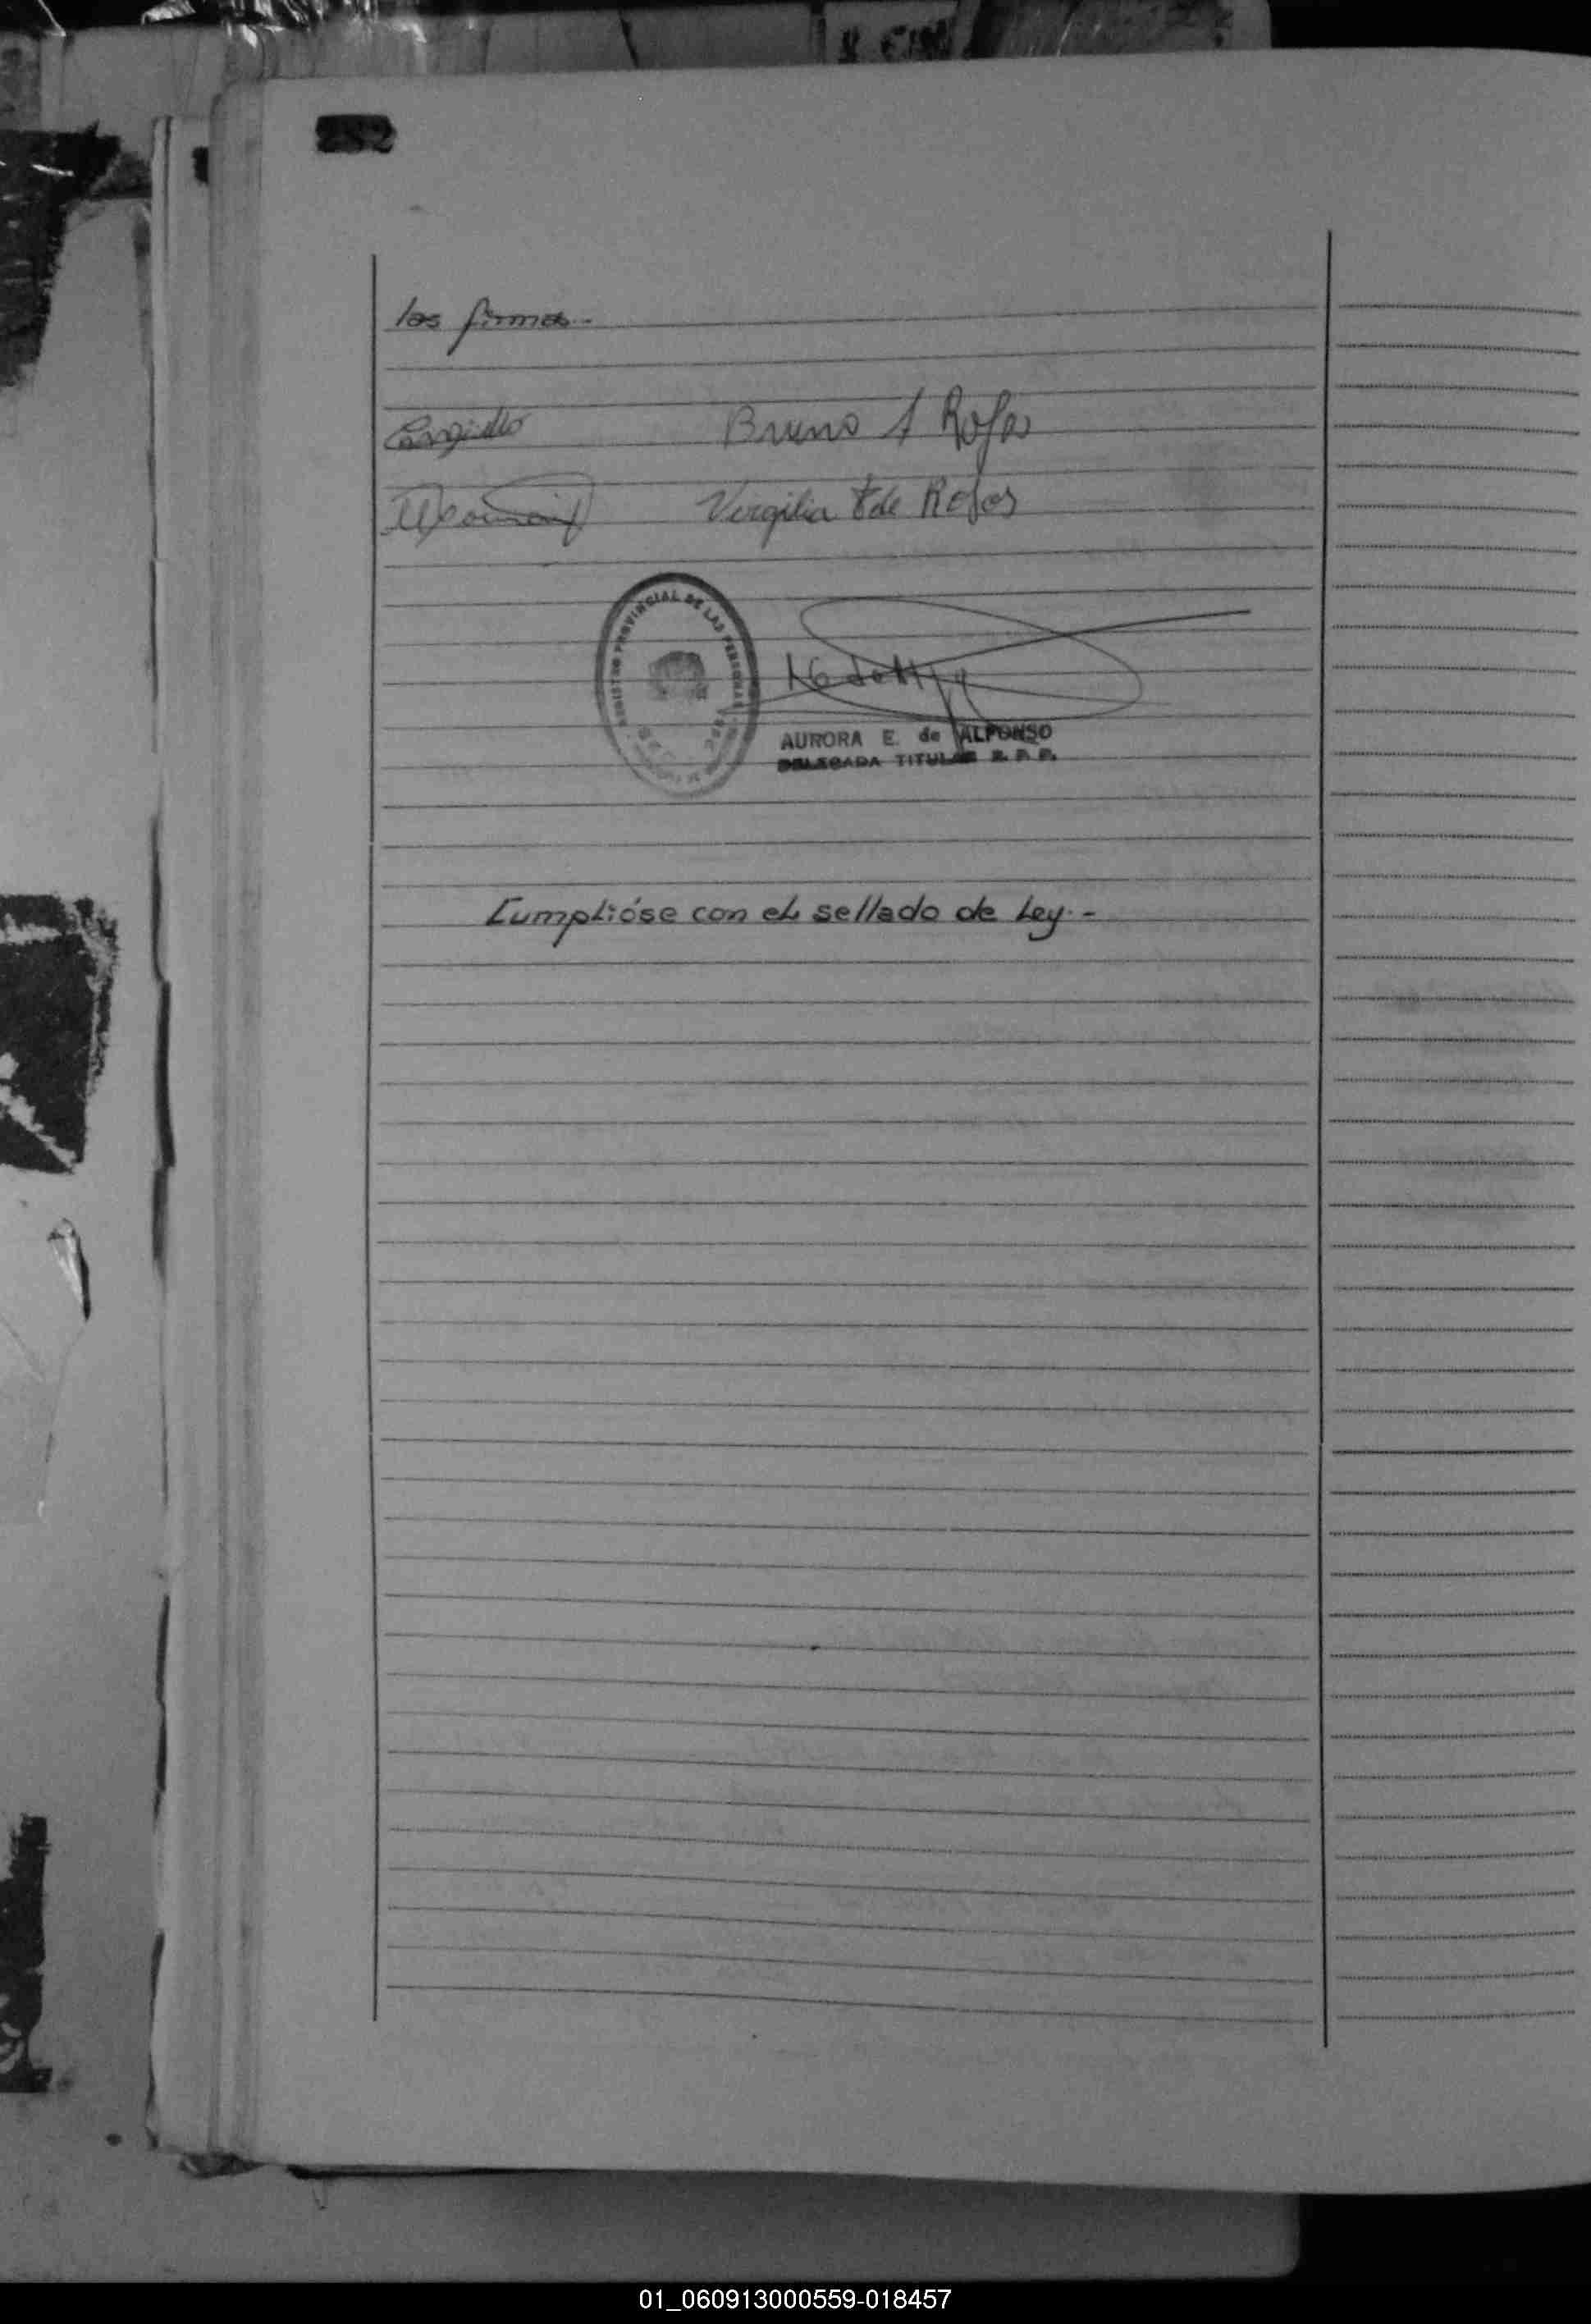 282
las firmas.-
Bruno A Rojas
Virgilia t de Rojas
REGISTRO PROVINCIAL DE LAS PERSONAS
AURORA E. de ALFONSO
DELEGADA TITULAR R. P. P.
Cumplióse con el sellado de Ley.-
01_060913000559-018457